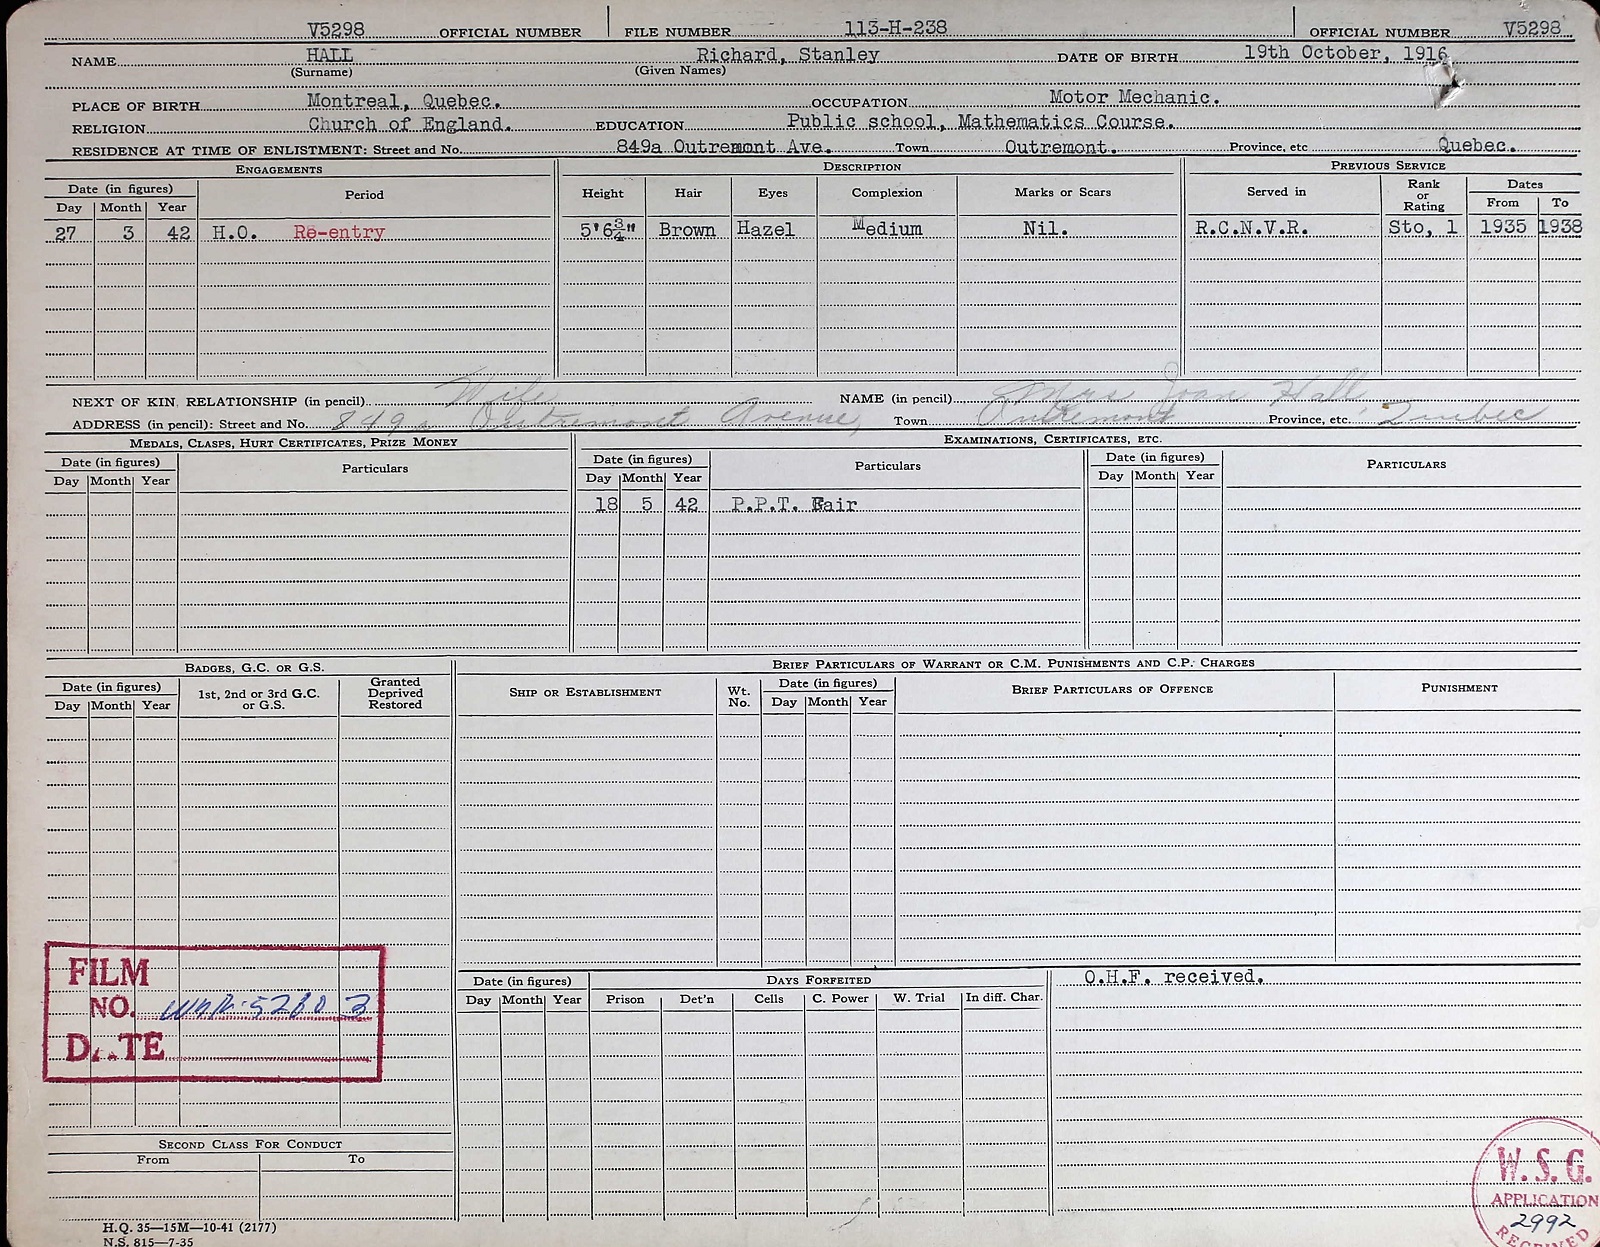 V5298 OFFICIAL NUMBER FILE NUMBER 113-H-238 OFFICIAL NUMBER V5298
NAME HALL Richard, Stanley DATE OF BIRTH 19th October, 1916
(Surname) (Given Names)
PLACE OF BIRTH Montreal, Quebec. OCCUPATION Motor Mechanic.
RELIGION Church of England. EDUCATION Public school, Mathematics Course.
RESIDENCE AT TIME OF ENLISTMENT: Street and No. 849a Outremont Ave. Town Outremont. Province, etc Quebec.
ENGAGEMENTS DESCRIPTION PREVIOUS SERVICE
Date (in figures) Period Height Hair Eyes Complexion Marks or Scars Served in Rank or Rating Dates
Day Month Year From To
27 3 42 H.O. Re-entry 5'6¾" Brown Hazel Medium Nil. R.C.N.V.R. Sto, 1 1935 1938
NEXT OF KIN, RELATIONSHIP (in pencil) Wife NAME (in pencil) Mrs Joan Hall
ADDRESS (in pencil): Street and No. 849a Outremont Avenue, Town Outremont Province, etc. Quebec
MEDALS, CLASPS, HURT CERTIFICATES, PRIZE MONEY EXAMINATIONS, CERTIFICATES, ETC.
Date (in figures) Particulars Date (in figures) Particulars Date (in figures) PARTICULARS
Day Month Year Day Month Year Day Month Year
18 5 42 P.P.T. Fair
BADGES, G.C. OR G.S. BRIEF PARTICULARS OF WARRANT OR C.M. PUNISHMENTS AND C.P. CHARGES
Date (in figures) 1st, 2nd or 3rd G.C. or G.S. Granted Deprived Restored SHIP OR ESTABLISHMENT Wt. No. Date (in figures) BRIEF PARTICULARS OF OFFENCE PUNISHMENT
Day Month Year Day Month Year
FILM
NO. 3
DATE
Date (in figures) DAYS FORFEITED O.H.F. received.
Day Month Year Prison Det'n Cells C. Power W. Trial In diff. Char.
SECOND CLASS FOR CONDUCT
From To
W.S.G.
APPLICATION
2992
RECEIVED
H.Q. 35—15M—10-41 (2177)
N.S. 815—7-35